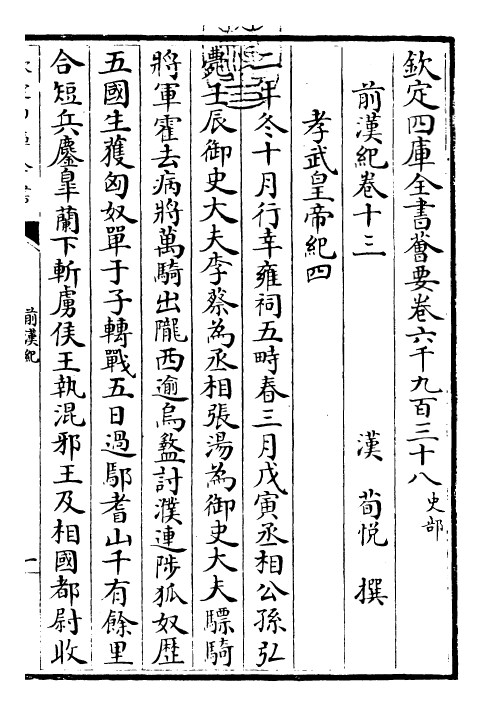 欽定四庫全書薈要卷六千九百三十八史部
前漢紀卷十三　漢　荀悅　撰
孝武皇帝紀四
二年冬十月行幸雍祠五畤春三月戊寅丞相公孫弘
薨壬辰御史大夫李蔡為丞相張湯為御史大夫驃騎
將軍霍去病將萬騎出隴西逾烏盭討濮連陟狐奴歷
五國生獲匈奴單于子轉戰五日過鄢耆山千有餘里
合短兵鏖臯蘭下斬虜侯王執混邪王及相國都尉收
前漢紀
一